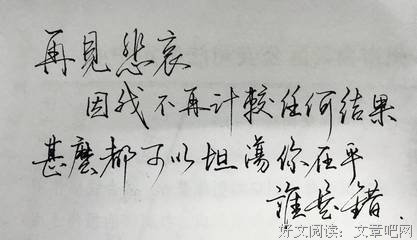 再見悲哀
因我不再計較任何結果
甚麼都可以坦蕩你在乎
誰是錯.
好文阅读：文章吧网